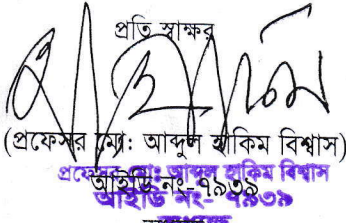 প্রতি স্বাক্ষর
(প্রফেসর মো: আব্দুল হাকিম বিশ্বাস)
প্রফেসর মো: আব্দুল হাকিম বিশ্বাস
আইডি নং-৭৯৩৯
আইডি নং- ৭৯৩৯